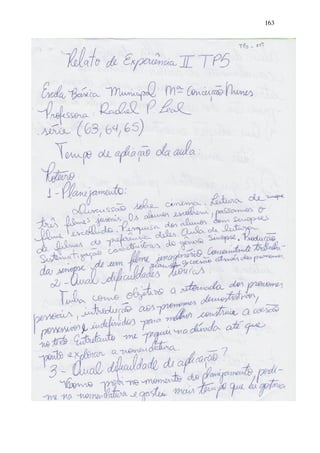 163
Relato de Experiência II TP5
Escola Básica Municipal Mª Conceição Nunes
Professora: Rachel P Leal
série (63, 64, 65)
Tempo de aplicação da aula:
Roteiro
1 - Planejamento:
Discussão sobre cinema. Leitura de sinopse
três filmes jovens. Os alunos escolhem, passamos o
filme escolhido. Pesquisa dos alunos com sinopses
de filmes de preferência deles. Aula de leitura
Sistematização Constitutivas do gênero Sinopse. Produção
da sinopse de um filme imaginário.
2 - Qual dificuldades teóricas
Tinha como objetivo a retomada dos pronomes
pessoais, introdução aos pronomes demonstrativos,
possessivos e indefinidos para melhor construir a coesão
no texto. Entretanto me peguei na dúvida até que
ponto explorar a nomenclatura.
3 - Qual dificuldade de aplicação?
no momento do planejamento,
me na nomenclatura e gastei mais tempo que gostaria